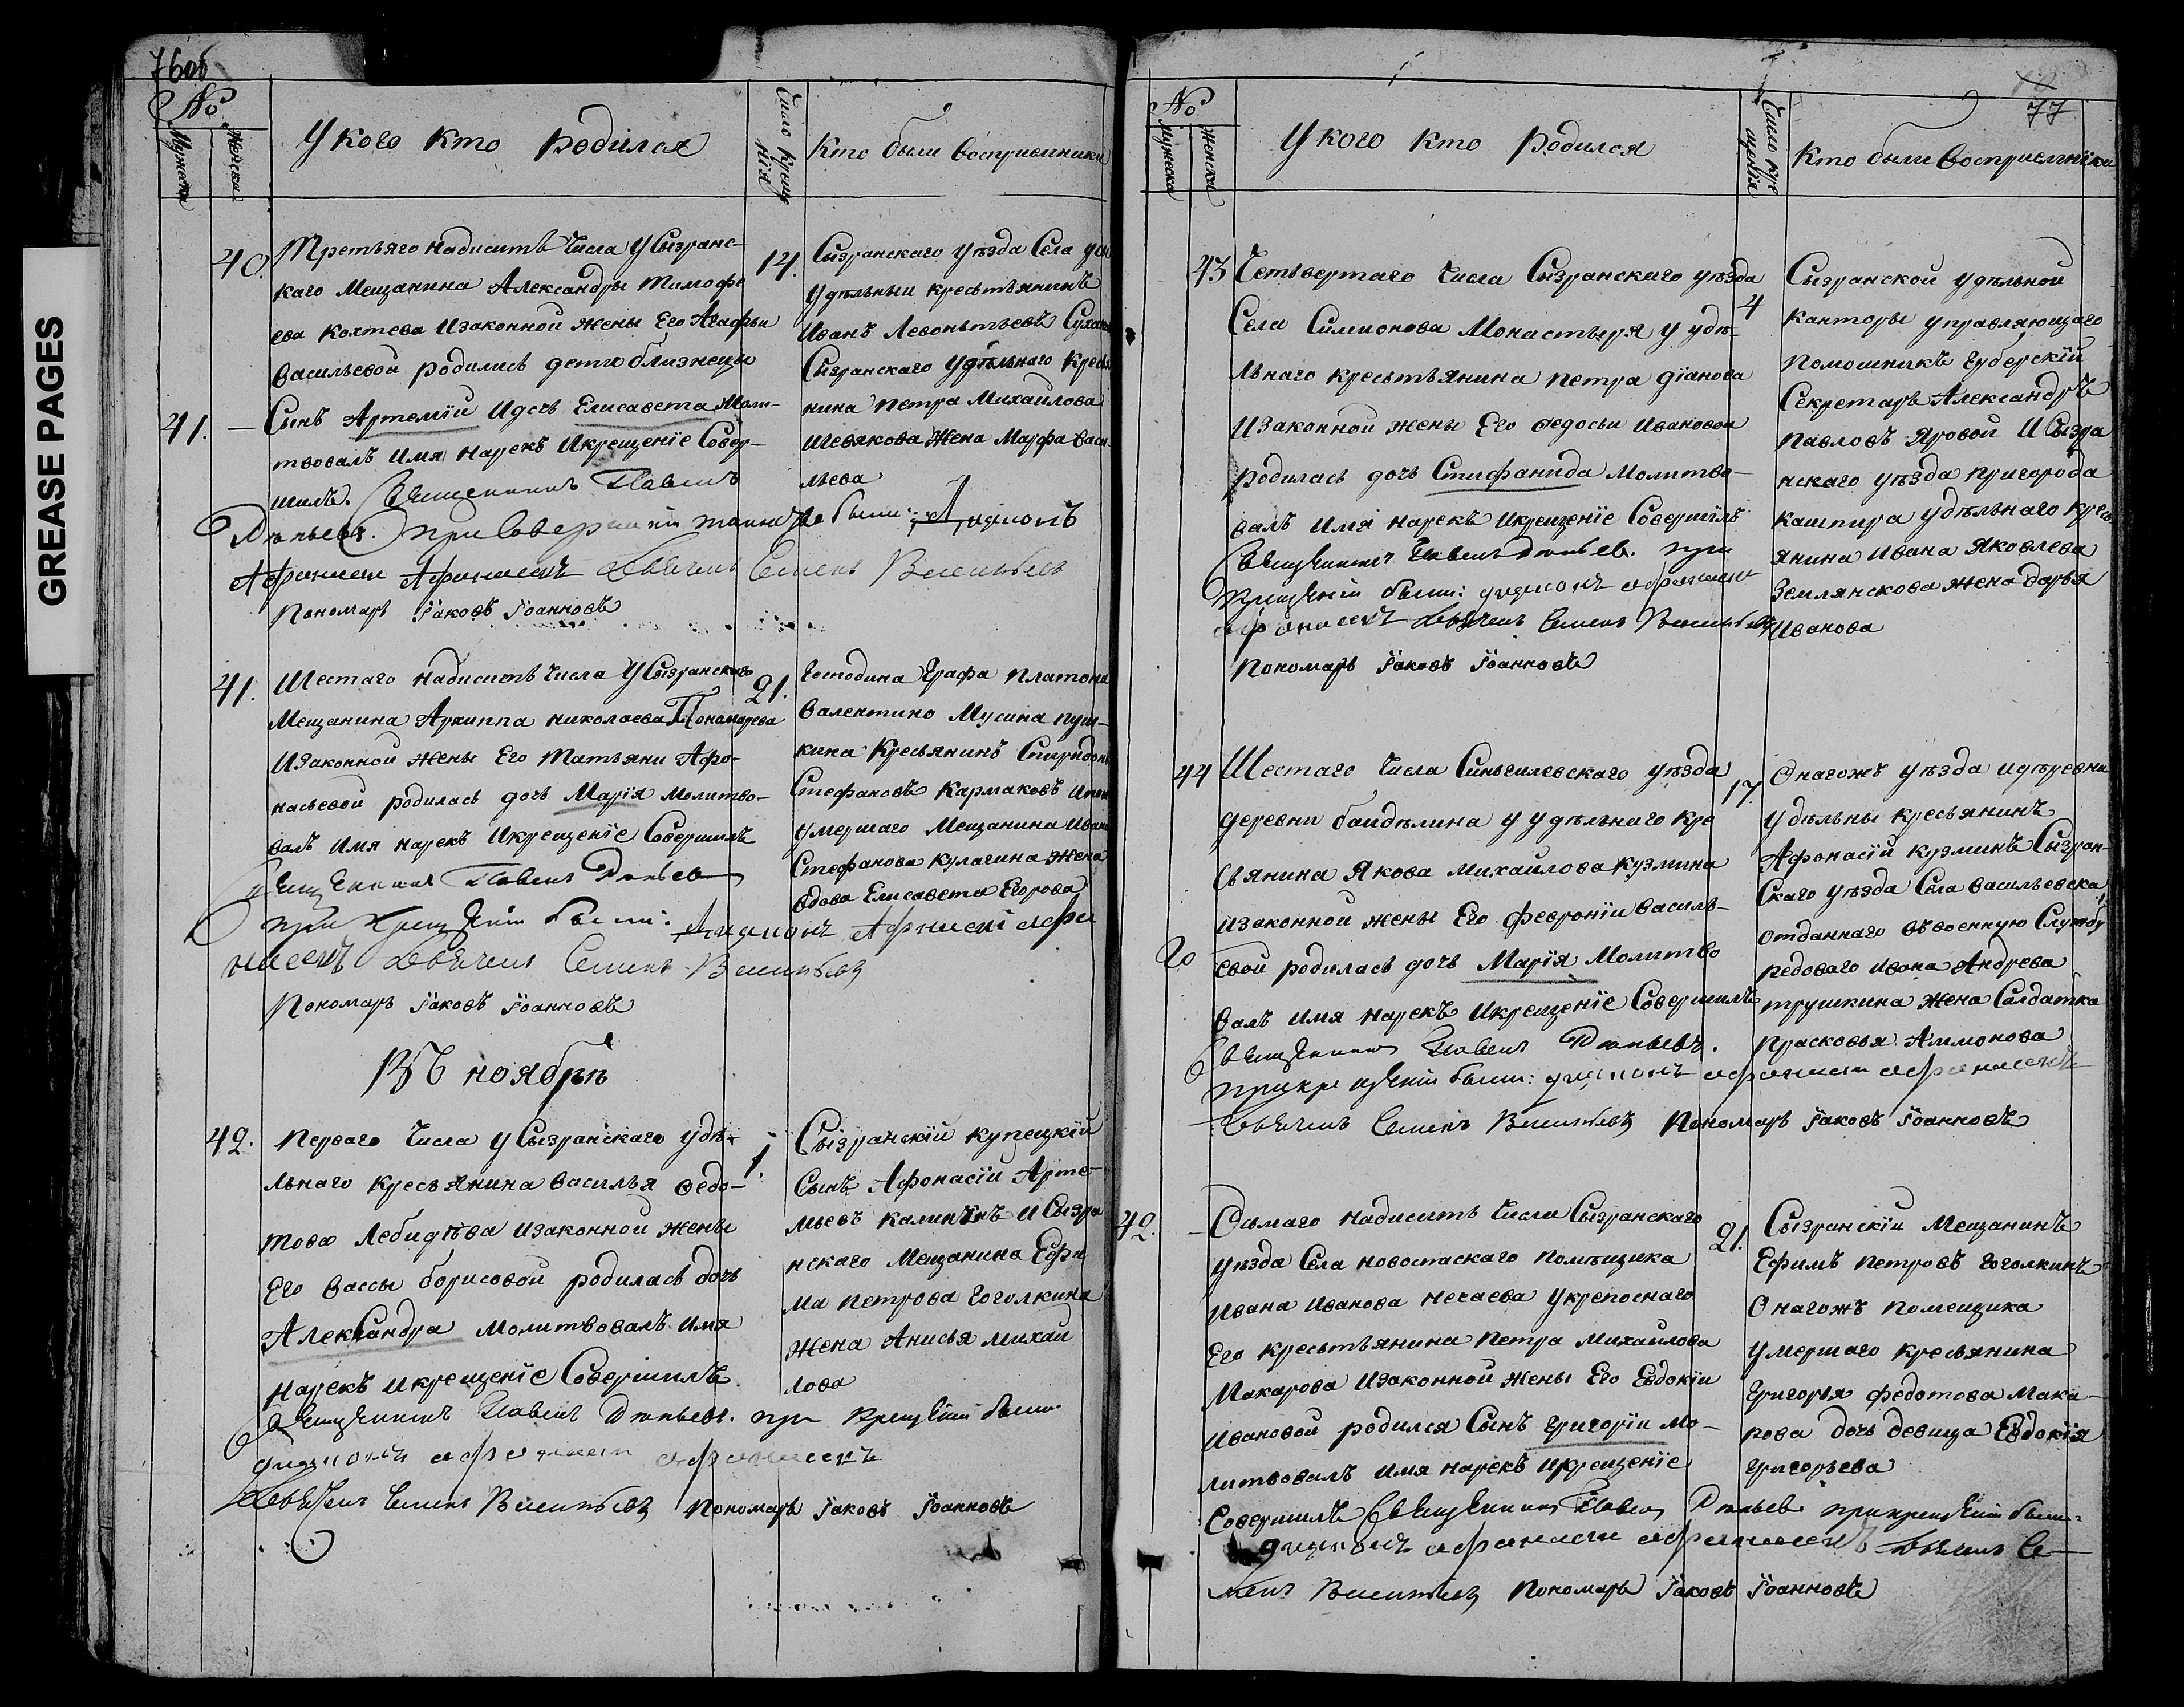 GREASE PAGES
76об
№
Мужска
Женска
У кого кто родился
Число крещенія
Кто были восприемники
40. Третьяго надцеть числа У Сызранс-
каго Мещанина Александры Тимофе
ева Кохтева Изаконной жены Его Агафьи
Васильевой родились дети близнецы
41. Сынъ Артемїи Идочь Елисавета Моли-
твовалъ Имя Нарекъ Икрещенїе Совер-
шилъ. Священникъ Павелъ
при были: Дидионъ
Семенъ Васильевъ
Пономарь Їаковъ Їоанновъ
14.
Сызранскаго уѣзда Села
Удѣльныи крестьянинъ
Иванъ Левонтьевъ
Сызранскаго Удѣльнаго
нина Петра Михаилова
Шевякова Жена Марфа Васи-
льева
41. Шестаго надцеть числа У Сызранскаго
Мещанина Архиппа Николаева Пономарева
Изаконной жены Его Татьяны Афо-
насьевой родилась дочь Марїя Молитво-
валъ Имя Нарекъ Икрещенїе Совершилъ
Священникъ Павелъ
при Крещенїи были:
Семенъ Васильевъ
Пономарь Їаковъ Їоанновъ
21.
Господина Графа Платона
Валентино Мусина Пуш-
кина Кресьянинъ Спиридонъ
Стефановъ Кармаковъ
Умершаго Мещанина Ивана
Стефанова Кулагина Жена
вдова Елисавета Егорова
Въ ноябрѣ
42. Перваго числа У Сызранскаго удѣ-
льнаго Кресьянина Василья Федо-
това Лебидѣва Изаконной жены
Его Вассы Борисовой родилась дочь
Александра Молитвовалъ Имя
Нарекъ Икрещенїе Совершилъ
Священникъ Павелъ при Крещенїи были
Семенъ Васильевъ Пономарь Їаковъ Їоанновъ
1.
Сызранскїй Купецкїй
Сынъ Афонасїи Арте-
мьевъ Калинінъ И Сызра
нскаго Мещанина Ефи
ма Петрова Гоголкина
Жена Анисья Михаи
лова
77
№
Мужеска
Женска
У кого кто родился
Число крещенія
Кто были восприемники
43 Четвертаго числа Сызранскаго уѣзда
Села Симионова Монастыря У удѣ-
льнаго крестьянина Петра Дїанова
Изаконной жены Его Федосьи Ивановой
родилась дочь Стифанида Молитво-
валъ Имя Нарекъ Икрещенїе Совершилъ
Священникъ Павелъ при
Крещенїи были:
Семенъ Васильевъ
Пономарь Їаковъ Їоанновъ
4
Сызранской удѣльной
Канторы управляющаго
Помошникъ Губерскїй
Секретарь Александръ
Павловъ Яровой И Сызра
нскаго уѣзда пригорода
Кашпира удѣльнаго кресь
янина Ивана Яковлева
Землянскова жена Дарья
Иванова
44 Шестаго числа Синьгилевскаго уѣзда
Деревни Баидѣлина у удѣльнаго кре
сьянина Якова Михаилова Кузмина
Изаконной жены Его Феврониїи Василь-
евой родилась дочь Марїя Молитво
валъ Имя Нарекъ Икрещенїе Совершилъ
Священникъ Павелъ
при крещенїи были:
Семенъ Васильевъ Пономарь Їаковъ Їоанновъ
17
Онагожъ уѣзда идѣревни
Удѣльны кресьянинъ
Афонасїи Кузминъ Сызран-
скаго уѣзда Села Васильевска
отданнаго въвоенную Службу
редоваго Ивана Андрева
Трушкина Жена Салдатка
Прасковья Аммонова
42. Сѣмаго надцеть числа Сызранскаго
уѣзда Села Новоспаскаго помѣщика
Ивана Иванова Нечаева Укрепоснаго
Его крестьянина Петра Михаилова
Макарова Изаконной жены Его Евдокїи
Ивановой родился Сынъ Григорїи мо-
литвовалъ Имя Нарекъ Икрещенїе
Совершилъ Священникъ Павелъ прикрещенїи были
Се-
менъ Васильевъ Пономарь Їаковъ Їоанновъ
21.
Сызранскїи Мещанинъ
Ефимъ Петровъ Гоголкинъ
Онагожъ помещика
умершаго кресьянина
Григорія Федотова Мака-
рова дочь девица Евдокїя
Григорьева